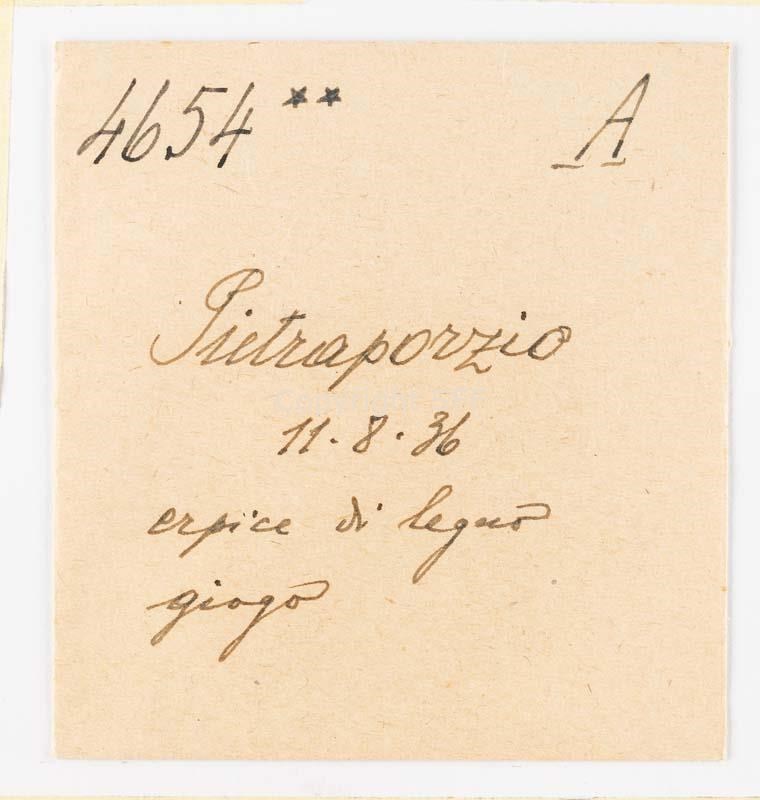 4654 ** A
Pietraporzio
11.8.36
erpice di legno
giogo